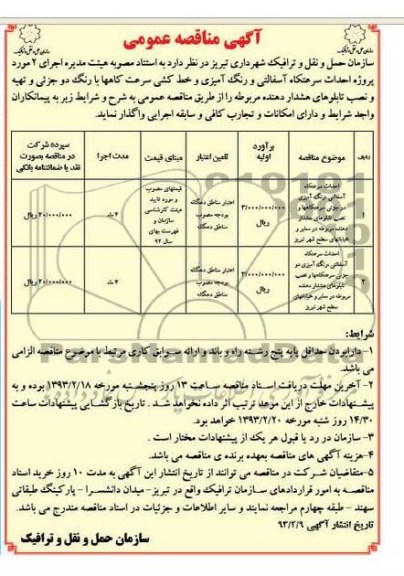 آگهی مناقصه عمومی
سازمان حمل و نقل و ترافیک شهرداری تبریز در نظر دارد به استناد مصوبه هیئت مدیره اجرای ۲ مورد
پروژه احداث سرعتکاه آسفالتی و رنگ آمیزی و خط کشی سرعت کاهها با رنگ دو جزئی و تهیه
و نصب تابلوهای هشدار دهنده مربوطه را از طریق مناقصه عمومی به شرح و شرایط زیر به پیمانکاران
واجد شرایط و دارای امکانات و تجارب کافی و سابقه اجرایی واگذار نماید.
ردیف موضوع مناقصه برآورد اولیه تامین اعتبار مبنای قیمت مدت اجرا سپرده شرکت در مناقصه بصورت نقد یا ضمانتنامه بانکی
۱
احداث سرعتکاه
آسفالتی و رنگ آمیزی
دو جزئی سرعتکاهها و
نصب تابلوهای هشدار
دهنده مربوطه در معابر و
خیابانهای سطح شهر تبریز
ریال
اعتبار مناطق دهگانه
بودجه مصوب
مناطق دهگانه
قیمتهای مصوب
و مورد تایید
هیئت کارشناسی
سازمان و
فهرست بهای
سال ۹۲
۴ ماه
۲۰/۰۰۰/۰۰۰ ریال
۲
احداث سرعتکاه
آسفالتی و رنگ آمیزی دو
جزئی سرعتکاهها و نصب
تابلوهای هشدار دهنده
مربوطه در معابر و خیابانهای
سطح شهر تبریز
ریال
اعتبار مناطق دهگانه
بودجه مصوب
مناطق دهگانه
۴ ماه
۲۰/۰۰۰/۰۰۰ ریال
شرایط:
۱- دارا بودن حداقل پایه پنج رشته راه و باند و ارائه سوابق کاری مرتبط با موضوع مناقصه الزامی
می باشد.
۲- آخرین مهلت دریافت اسناد مناقصه ساعت ۱۳ روز پنجشنبه مورخه ۱۳۹۳/۲/۱۸ بوده و به
پیشنهادات خارج از این موعد ترتیب اثر داده نخواهد شد. تاریخ بازگشایی پیشنهادات ساعت
۱۴/۳۰ روز شنبه مورخه ۱۳۹۳/۲/۲۰ خواهد بود.
۳- سازمان در رد یا قبول هر یک از پیشنهادات مختار است.
۴- هزینه آگهی های مناقصه بعهده برنده ی مناقصه می باشد.
۵- متقاضیان شرکت در مناقصه می توانند از تاریخ انتشار این آگهی به مدت ۱۰ روز خرید اسناد
مناقصه به امور قراردادهای سازمان ترافیک واقع در تبریز - میدان دانشسرا - پارکینگ طبقاتی
سهند - طبقه چهارم مراجعه نمایند و سایر اطلاعات و جزئیات در اسناد مناقصه مندرج می باشد.
تاریخ انتشار آگهی ۹۳/۲/۹
سازمان حمل و نقل و ترافیک